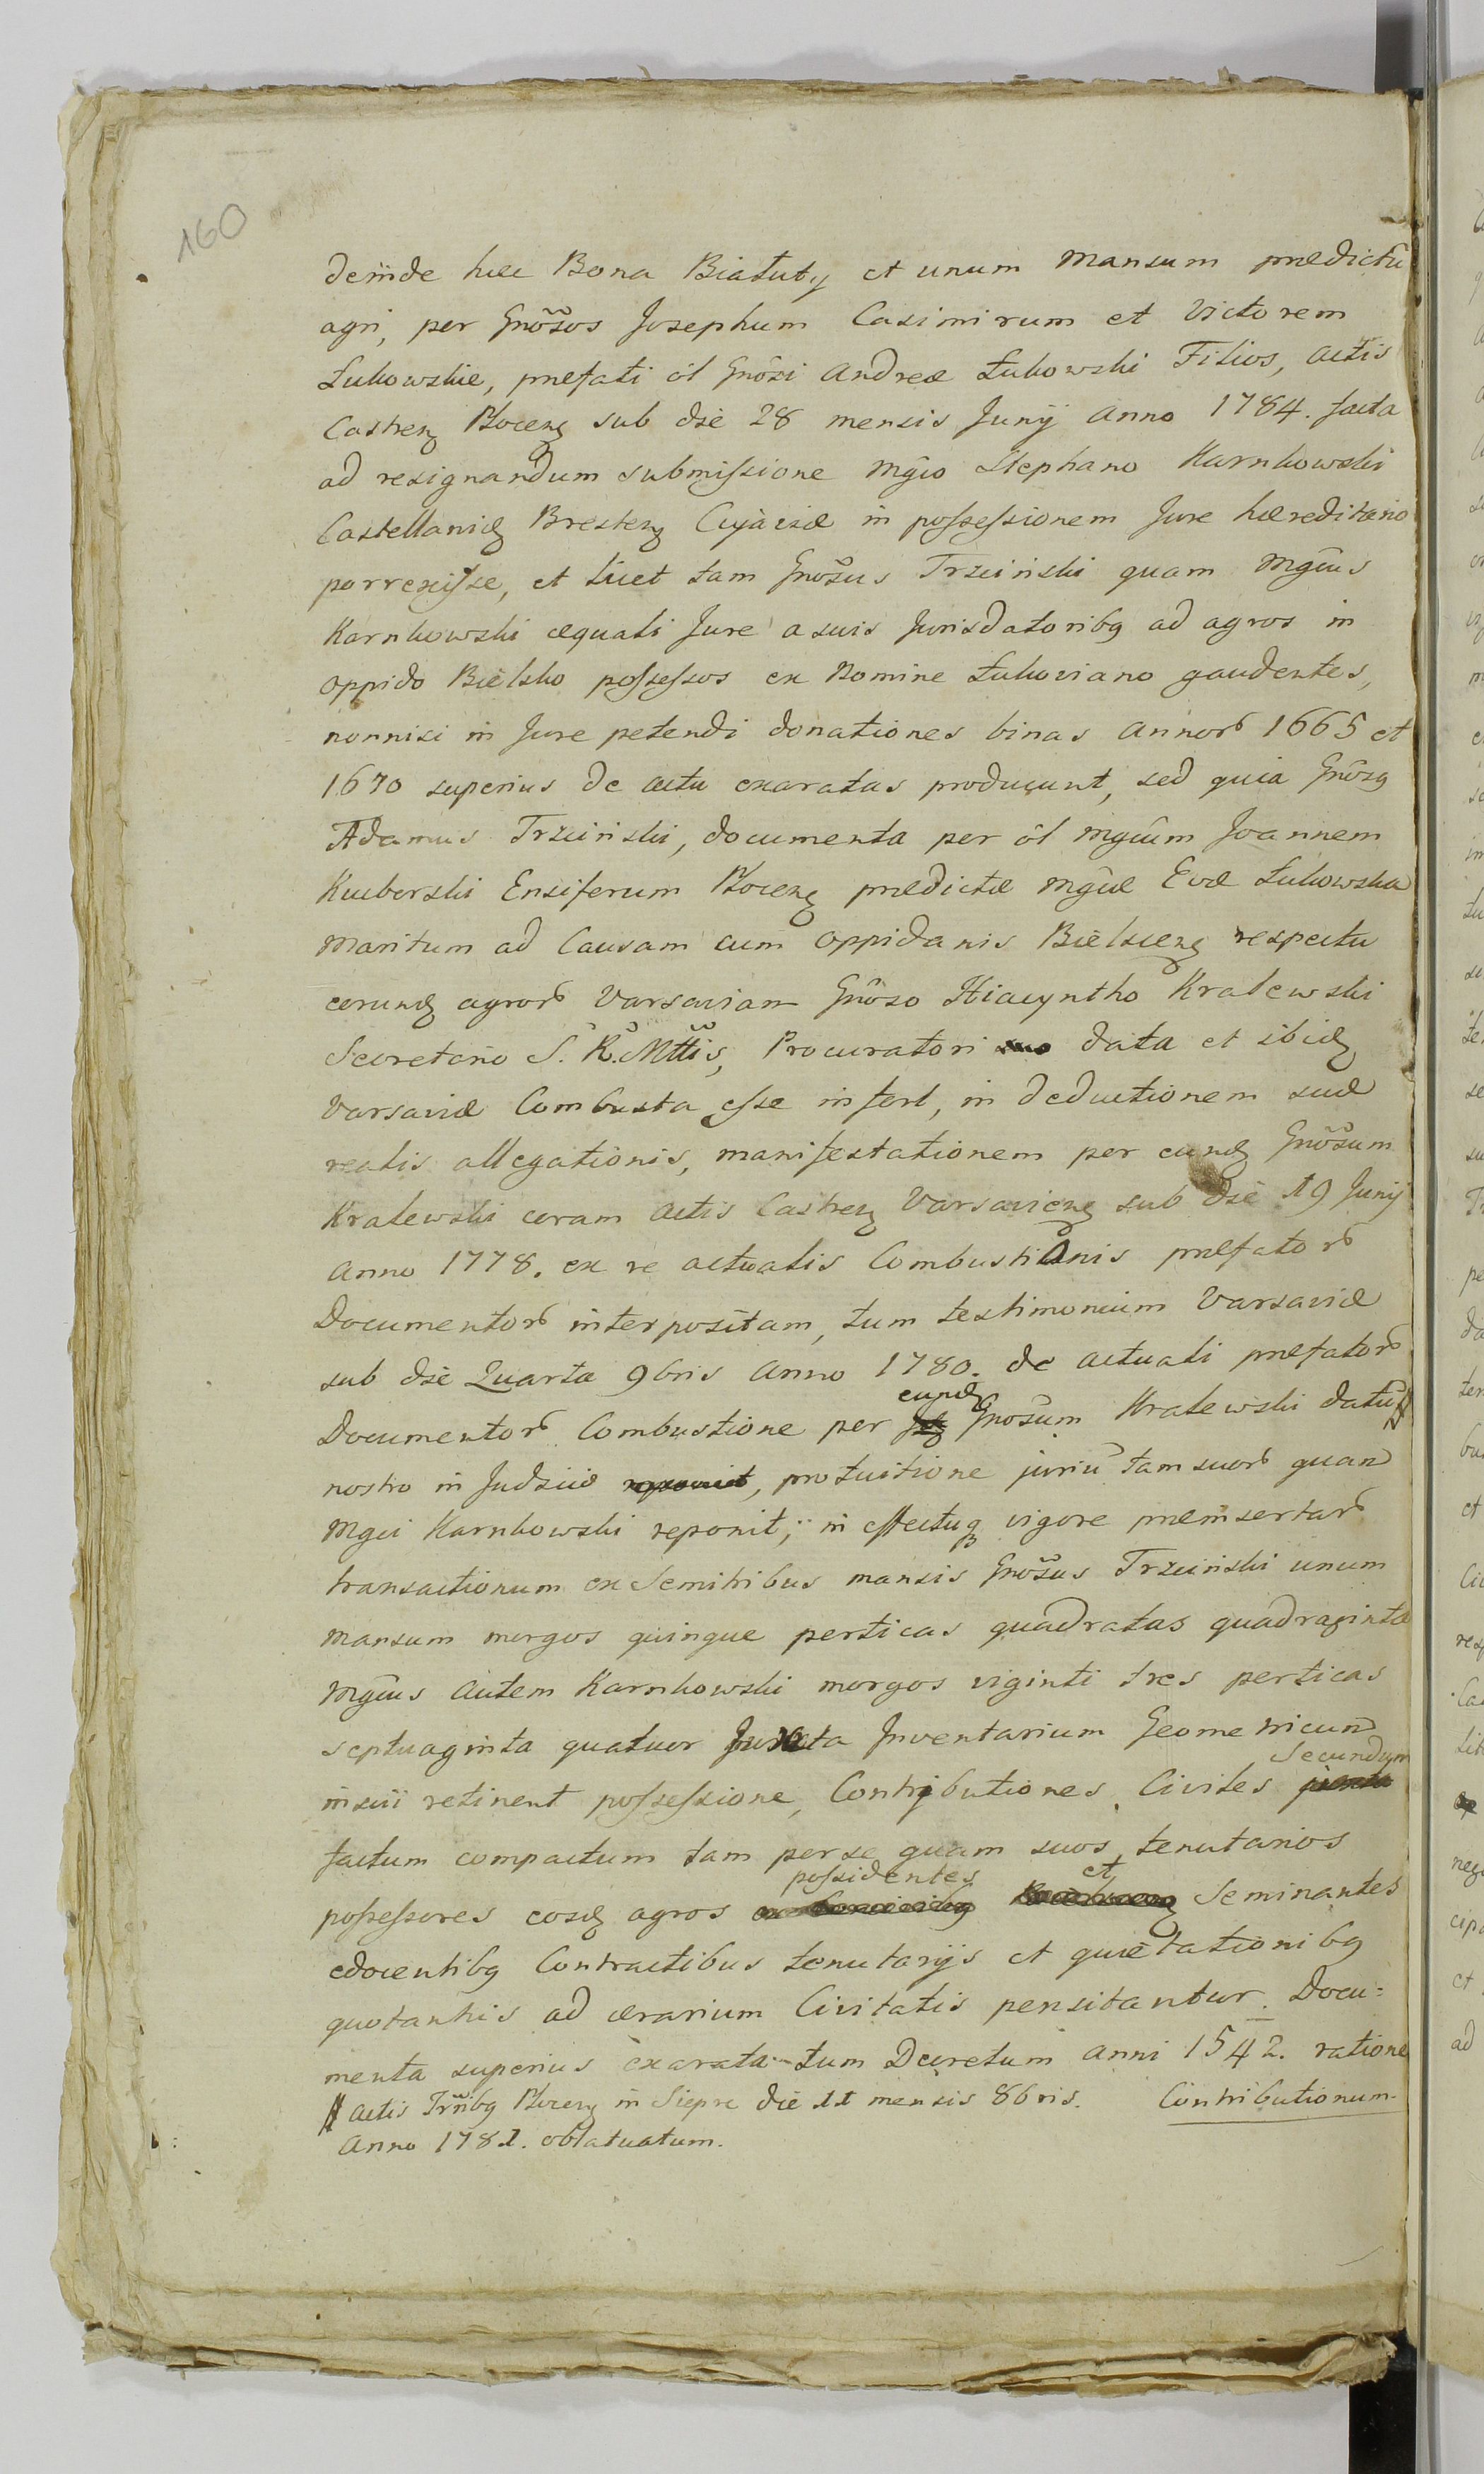 160
deinde hæc Bona Białuty et unum Mansum prædictũ
agri, per Gnõsos Josephum Casimirum et Victorem
Łukowskie, præfati ol Gnôsi Andreæ Łukowski Filios, actis
Castren Plocen sub die 28 mensis Junij Anno 1784. facta
ad resignandum submissione Mgîo Stephano Karnkowski
Castellanid Bresten Cujaviæ in possessionem Jure hæreditario
porrexisse, et licet tam Gnosus Trzcinski quam Mgĩus
Karnkowski æquali Jure a suis Jurisdatoribq ad agros in
oppido Bielsko possessos ex Nomine Łukoviano gaudentes,
nonnisi in Jure petendi donationes binas Annor 1665 et
1670 superius de actu exaratas producunt, sed quia Gnôsq
Adamus Trzcinski, documenta per ol Mgîum Joannem
Kueborski Ensiferum Plocen prædictæ Mgîæ Evæ Łukowska
Maritum ad Causam cum oppidanis Bielscen respectu
eorund agror Varsaviam Gnôso Hiacyntho Kralewski
Secretario S. R. Mttis, Procuratori data et ibid
Varsaviæ Combusta esse infert, in deductionem suæ
realis allegationis, manifestationem per eund Gnôsum
Kralewski coram Actis Castren Varsavien sub die 19 Junij
Anno 1778. ex re actualis Combustionis præfator
Documentor interpositam, tum testimonium Varsaviæ
sub die Quarta 9bris Anno 1780. de actuali præfator
eund
Documentor Combustione per Gnôsum Kralewski datũ #
nostro in Judicio, pro tuitione juriũ tam suor quam
Mgîi Karnkowski reponit, in effectuq vigore præinsertar
transactionum ex Semitribus mansis Gnôsus Trzcinski unum
Mansum morgos quinque perticas quadratas quadraginta
Mgĩus autem Karnkowski morgos viginti tres perticas
septuaginta quatuor Juxta Inventarium Geometricum
Secundum
in sui retinent possessione, Contributiones Civiles
factum compactum tam per se quam suos tenutarios
possidentes et
possessores eosd agros Seminantes
edocentibq Contractibus tenutarijs et quietationibq
quotannis ad ærarium Civitatis pensitantur. Docu=
menta superius exarata tum Decretum Anni 1542. ratione
Contributionum
# actis Trñibq Plocen in Sieprc die 11 mensis 8bris.
Anno 1781. oblatuatum.